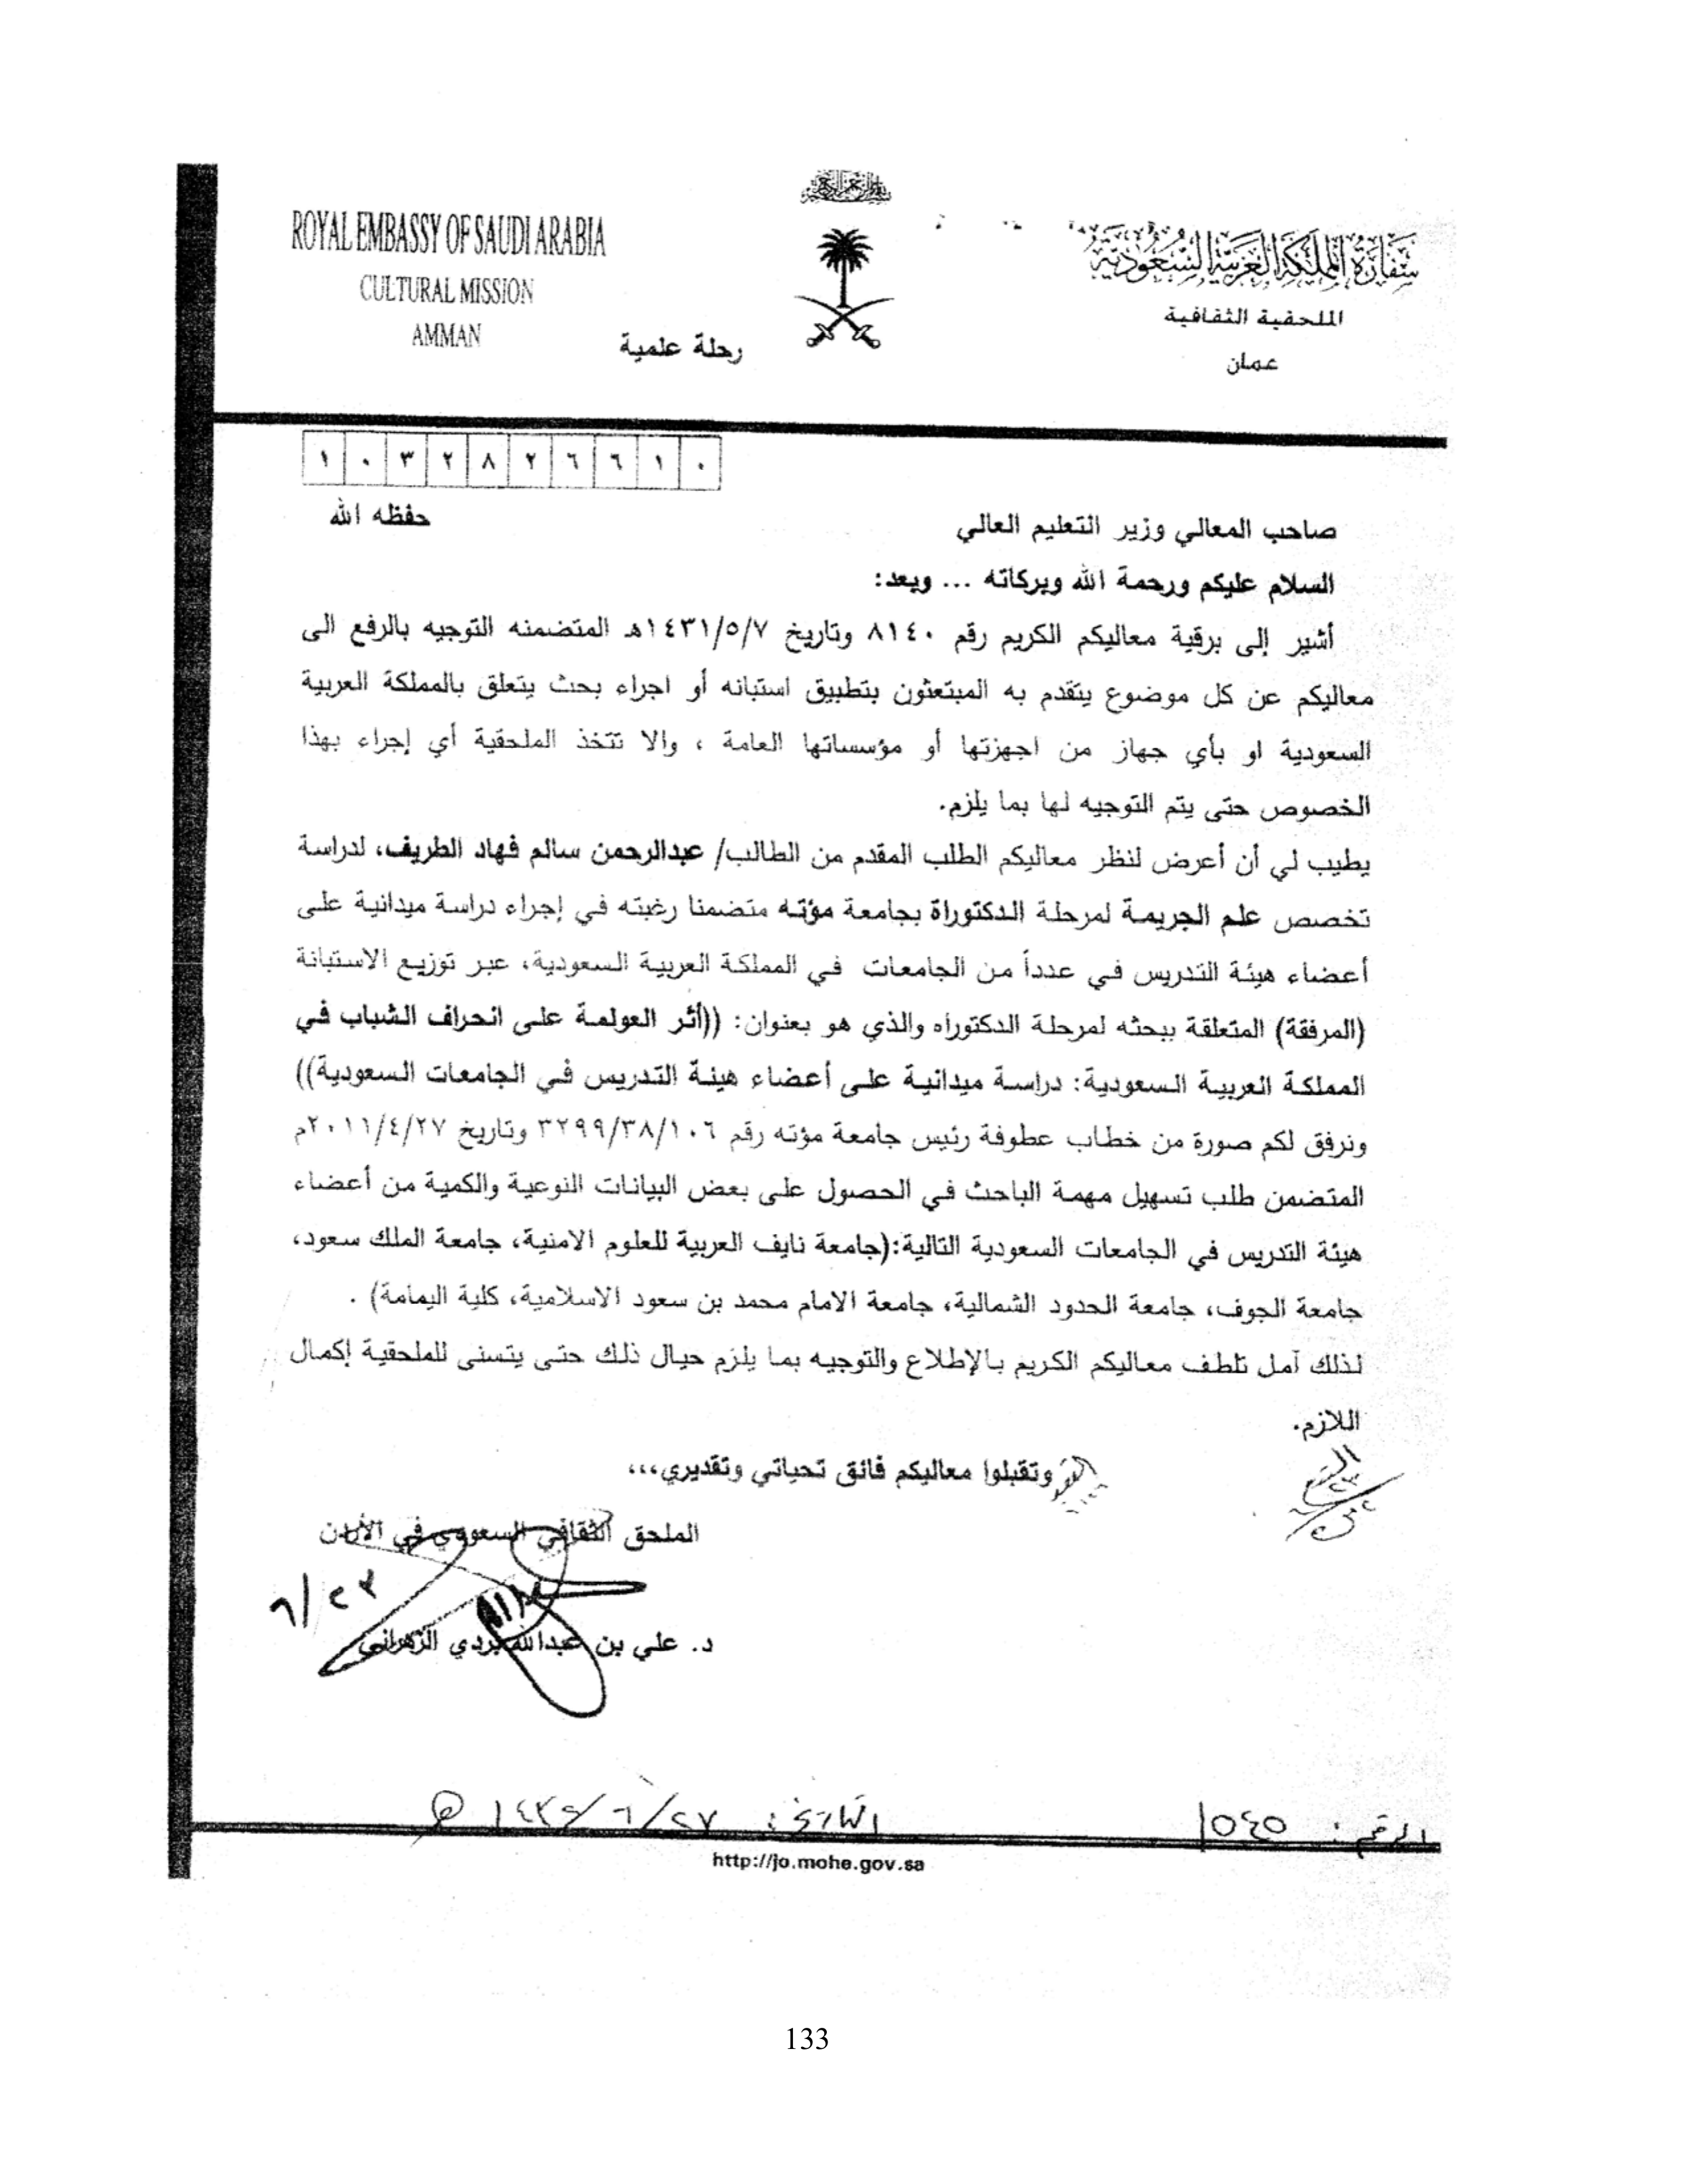 بسم الله الرحمن الرحيم
ROYAL EMBASSY OF SAUDI ARABIA
CULTURAL MISSION
AMMAN
سفارة المملكة العربية السعودية
الملحقية الثقافية
عمان
رحلة علمية
١ ٠ ٣ ٢ ٨ ٢ ٦ ٦ ١ ٠
صاحب المعالي وزير التعليم العالي حفظه الله
السلام عليكم ورحمة الله وبركاته ... وبعد:
أشير إلى برقية معاليكم الكريم رقم ٨١٤٠ وتاريخ ١٤٣١/٥/٧هـ المتضمنه التوجيه بالرفع الى
معاليكم عن كل موضوع يتقدم به المبتعثون بتطبيق استبانه أو اجراء بحث يتعلق بالمملكة العربية
السعودية او بأي جهاز من اجهزتها أو مؤسساتها العامة ، والا تتخذ الملحقية أي إجراء بهذا
الخصوص حتى يتم التوجيه لها بما يلزم.
يطيب لي أن أعرض لنظر معاليكم الطلب المقدم من الطالب/ عبدالرحمن سالم فهاد الطريف، لدراسة
تخصص علم الجريمة لمرحلة الدكتوراة بجامعة مؤته متضمنا رغبته في إجراء دراسة ميدانية على
أعضاء هيئة التدريس في عدداً من الجامعات في المملكة العربية السعودية، عبر توزيع الاستبانة
(المرفقة) المتعلقة ببحثه لمرحلة الدكتوراه والذي هو بعنوان: ((أثر العولمة على انحراف الشباب في
المملكة العربية السعودية: دراسة ميدانية على أعضاء هيئة التدريس في الجامعات السعودية))
ونرفق لكم صورة من خطاب عطوفة رئيس جامعة مؤته رقم ٣٢٩٩/٣٨/١٠٦ وتاريخ ٢٠١١/٤/٢٧م
المتضمن طلب تسهيل مهمة الباحث في الحصول على بعض البيانات النوعية والكمية من أعضاء
هيئة التدريس في الجامعات السعودية التالية:(جامعة نايف العربية للعلوم الامنية، جامعة الملك سعود،
جامعة الجوف، جامعة الحدود الشمالية، جامعة الامام محمد بن سعود الاسلامية، كلية اليمامة) .
لذلك آمل تلطف معاليكم الكريم بالإطلاع والتوجيه بما يلزم حيال ذلك حتى يتسنى للملحقية إكمال
اللازم.
وتقبلوا معاليكم فائق تحياتي وتقديري،،،
الملحق الثقافي السعودي في الأردن
٦/٢٣
د. علي بن عبدالله بردي الزهراني
الرقم: ١٥٤٥ التاريخ: ١٤٣٢/٦/٢٧ هـ
http://jo.mohe.gov.sa
133